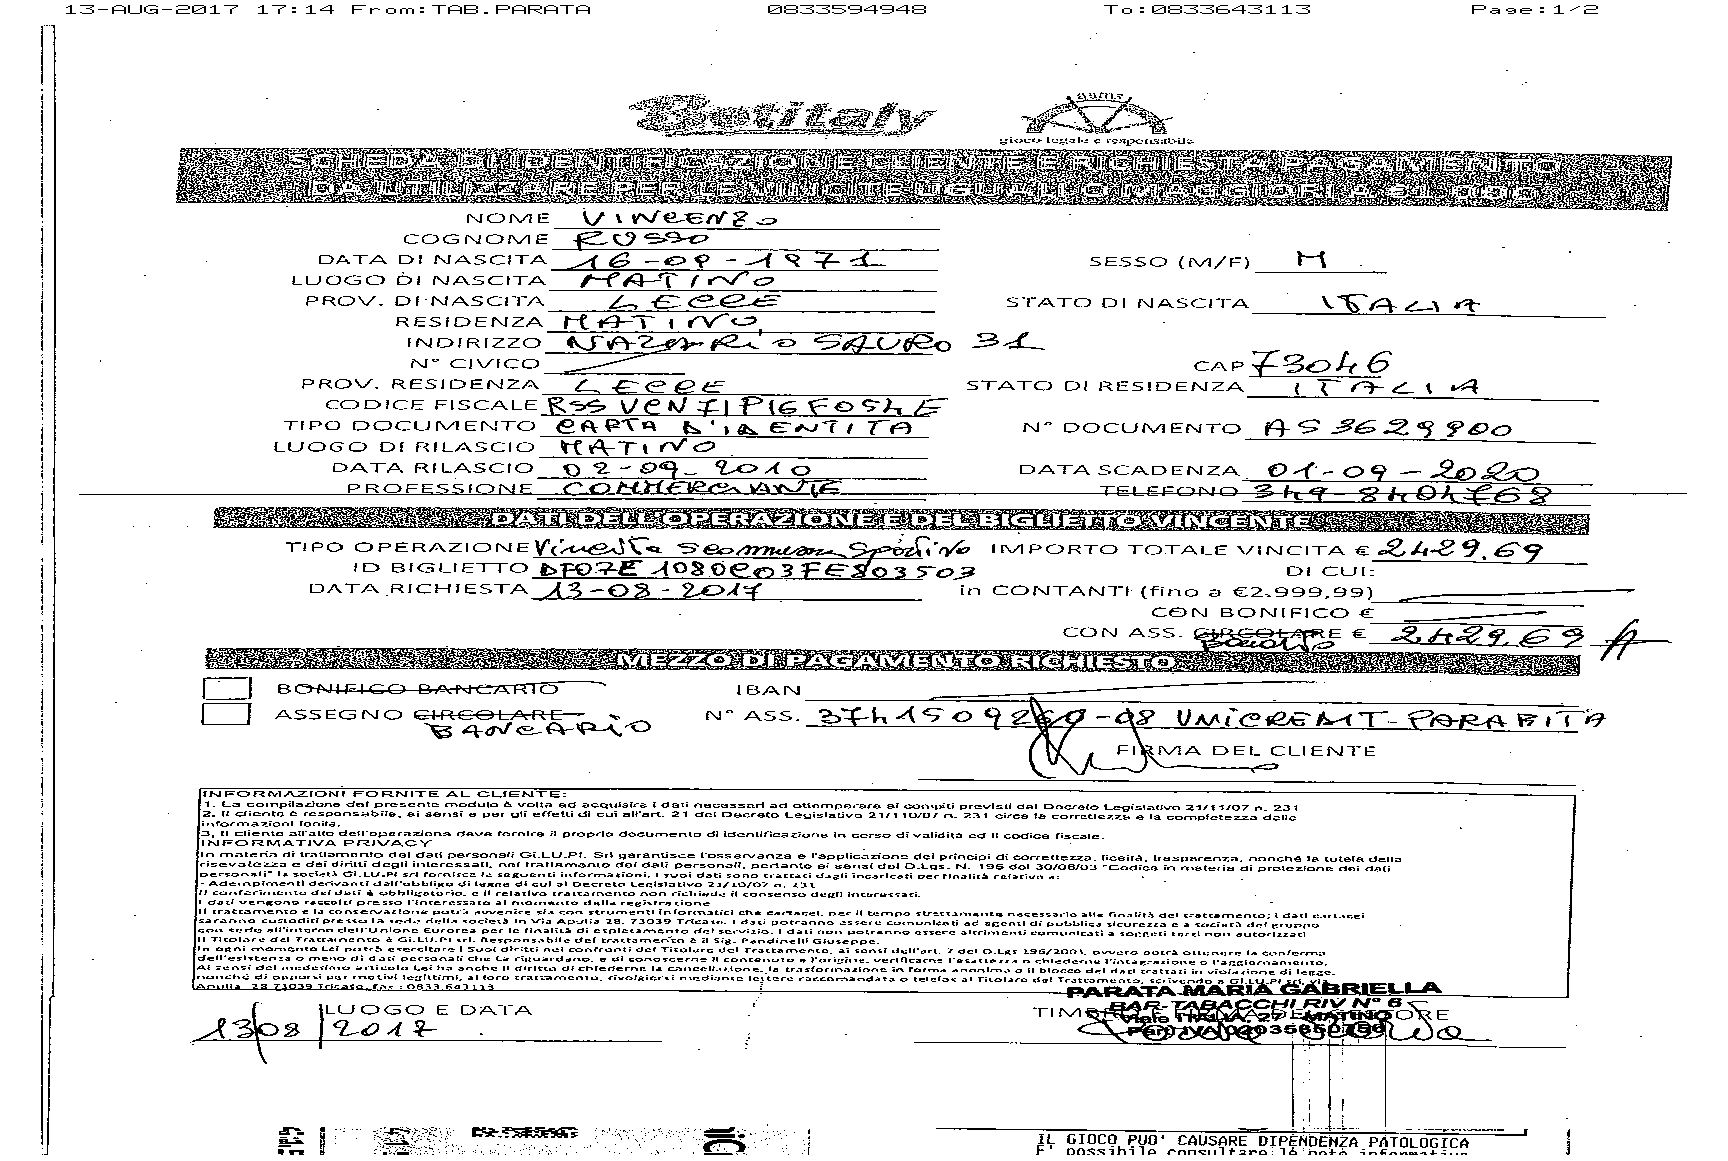 13-AUG-2017 17:14 From:TAB.PARATA 0833594948 To:0833643113 Page:1/2
Betitaly
aams
gioco legale e responsabile
SCHEDA DI IDENTIFICAZIONE CLIENTE E RICHIESTA PAGAMENTO
DA UTILIZZARE PER LE VINCITE UGUALI O MAGGIORI A
NOME VINCENZO
COGNOME RUSSO
DATA DI NASCITA 16-09-1971 SESSO (M/F) M
LUOGO DI NASCITA MATINO
PROV. DI NASCITA LECCE STATO DI NASCITA ITALIA
RESIDENZA MATINO
INDIRIZZO NAZARIO SAURO 31
N° CIVICO CAP 73046
PROV. RESIDENZA LECCE STATO DI RESIDENZA ITALIA
CODICE FISCALE RSSVCN71P16F054E
TIPO DOCUMENTO CARTA D'IDENTITA N° DOCUMENTO AS3629900
LUOGO DI RILASCIO MATINO
DATA RILASCIO 02-09-2010 DATA SCADENZA 01-09-2020
PROFESSIONE COMMERCIANTE TELEFONO 349-8404768
DATI DELL'OPERAZIONE E DEL BIGLIETTO VINCENTE
TIPO OPERAZIONE Vincita scommessa Sportiva IMPORTO TOTALE VINCITA € 2429.69
ID BIGLIETTO DF07E1080C03FE803503 DI CUI:
DATA RICHIESTA 13-08-2017 in CONTANTI (fino a €2.999,99)
CON BONIFICO €
CON ASS. CIRCOLARE € 2429.69
MEZZO DI PAGAMENTO RICHIESTO
BONIFICO BANCARIO IBAN
ASSEGNO CIRCOLARE N° ASS. 3741509260-08 UNICREDIT-PARABITA
BANCARIO
FIRMA DEL CLIENTE
INFORMAZIONI FORNITE AL CLIENTE:
1. La compilazione del presente modulo è volta ad acquisire i dati necessari ad ottemperare ai compiti previsti dal Decreto Legislativo 21/11/07 n. 231
2. Il cliente è responsabile, ai sensi e per gli effetti di cui all'art. 21 del Decreto Legislativo 21/110/07 n. 231 circa la correttezza e la completezza delle
informazioni fonite.
3. Il cliente all'atto dell'operazione deve fornire il proprio documento di identificazione in corso di validità ed il codice fiscale.
INFORMATIVA PRIVACY
In materia di trattamento dei dati personali Gi.LU.PI. Srl garantisce l'osservanza e l'applicazione dei principi di correttezza, liceità, trasparenza, nonché la tutela della
risevatezza e dei diritti degli interessati, nel trattamento dei dati personali, pertanto ai sensi del D.Lgs. N. 196 del 30/06/03 "Codice in materia di protezione dei dati
personali" la società Gi.LU.PI srl fornisce le seguenti informazioni. I suoi dati sono trattati dagli incaricati per finalità relative a:
- Adempimenti derivanti dall'obbligo di legge di cui al Decreto Legislativo 21/10/07 n. 231
Il conferimento dei dati è obbligatorio, e il relativo trattamento non richiede il consenso degli interessati.
I dati vengono raccolti presso l'interessato al momento della registrazione
Il trattamento e la conservazione potrà avvenire sia con strumenti informatici che cartacei, per il tempo strettamente necessario alle finalità del trattamento; i dati cartacei
saranno custoditi presso la sede della società in Via Apulia 28, 73039 Tricase. I dati potranno essere comunicati ad agenti di pubblica sicurezza e a società del gruppo
con sede all'interno dell'Unione Europea per le finalità di espletamento del servizio. I dati non potranno essere altrimenti comunicati a soggetti terzi non autorizzati
Il Titolare del Trattamento è Gi.LU.PI srl. Responsabile del trattamento è il Sig. Pandinelli Giuseppe.
In ogni momento Lei potrà esercitare i Suoi diritti nei confronti del Titolare del Trattamento, ai sensi dell'art. 7 del D.Lgs 196/2003, ovvero potrà ottenere la conferma
dell'esistenza o meno di dati personali che La riguardano, e di conoscerne il contenuto e l'origine, verificarne l'esattezza o chiederne l'integrazione o l'aggiornamento.
Ai sensi del medesimo articolo Lei ha anche il diritto di chiederne la cancellazione, la trasformazione in forma anonima o il blocco dei dati trattati in violazione di legge,
nonché di opporsi per motivi legittimi, al loro trattamento, rivolgersi mediante lettera raccomandata o telefax al Titolare del Trattamento, scrivendo a Gi.LU.PI srl via
Apulia 28 73039 Tricase, fax: 0833.643113
PARATA MARIA GABRIELLA
BAR-TABACCHI RIV N° 6
LUOGO E DATA
Viale ITALIA, 27 - MATINO
13/08/2017
IL GIOCO PUO' CAUSARE DIPENDENZA PATOLOGICA
E' possibile consultare le note informative